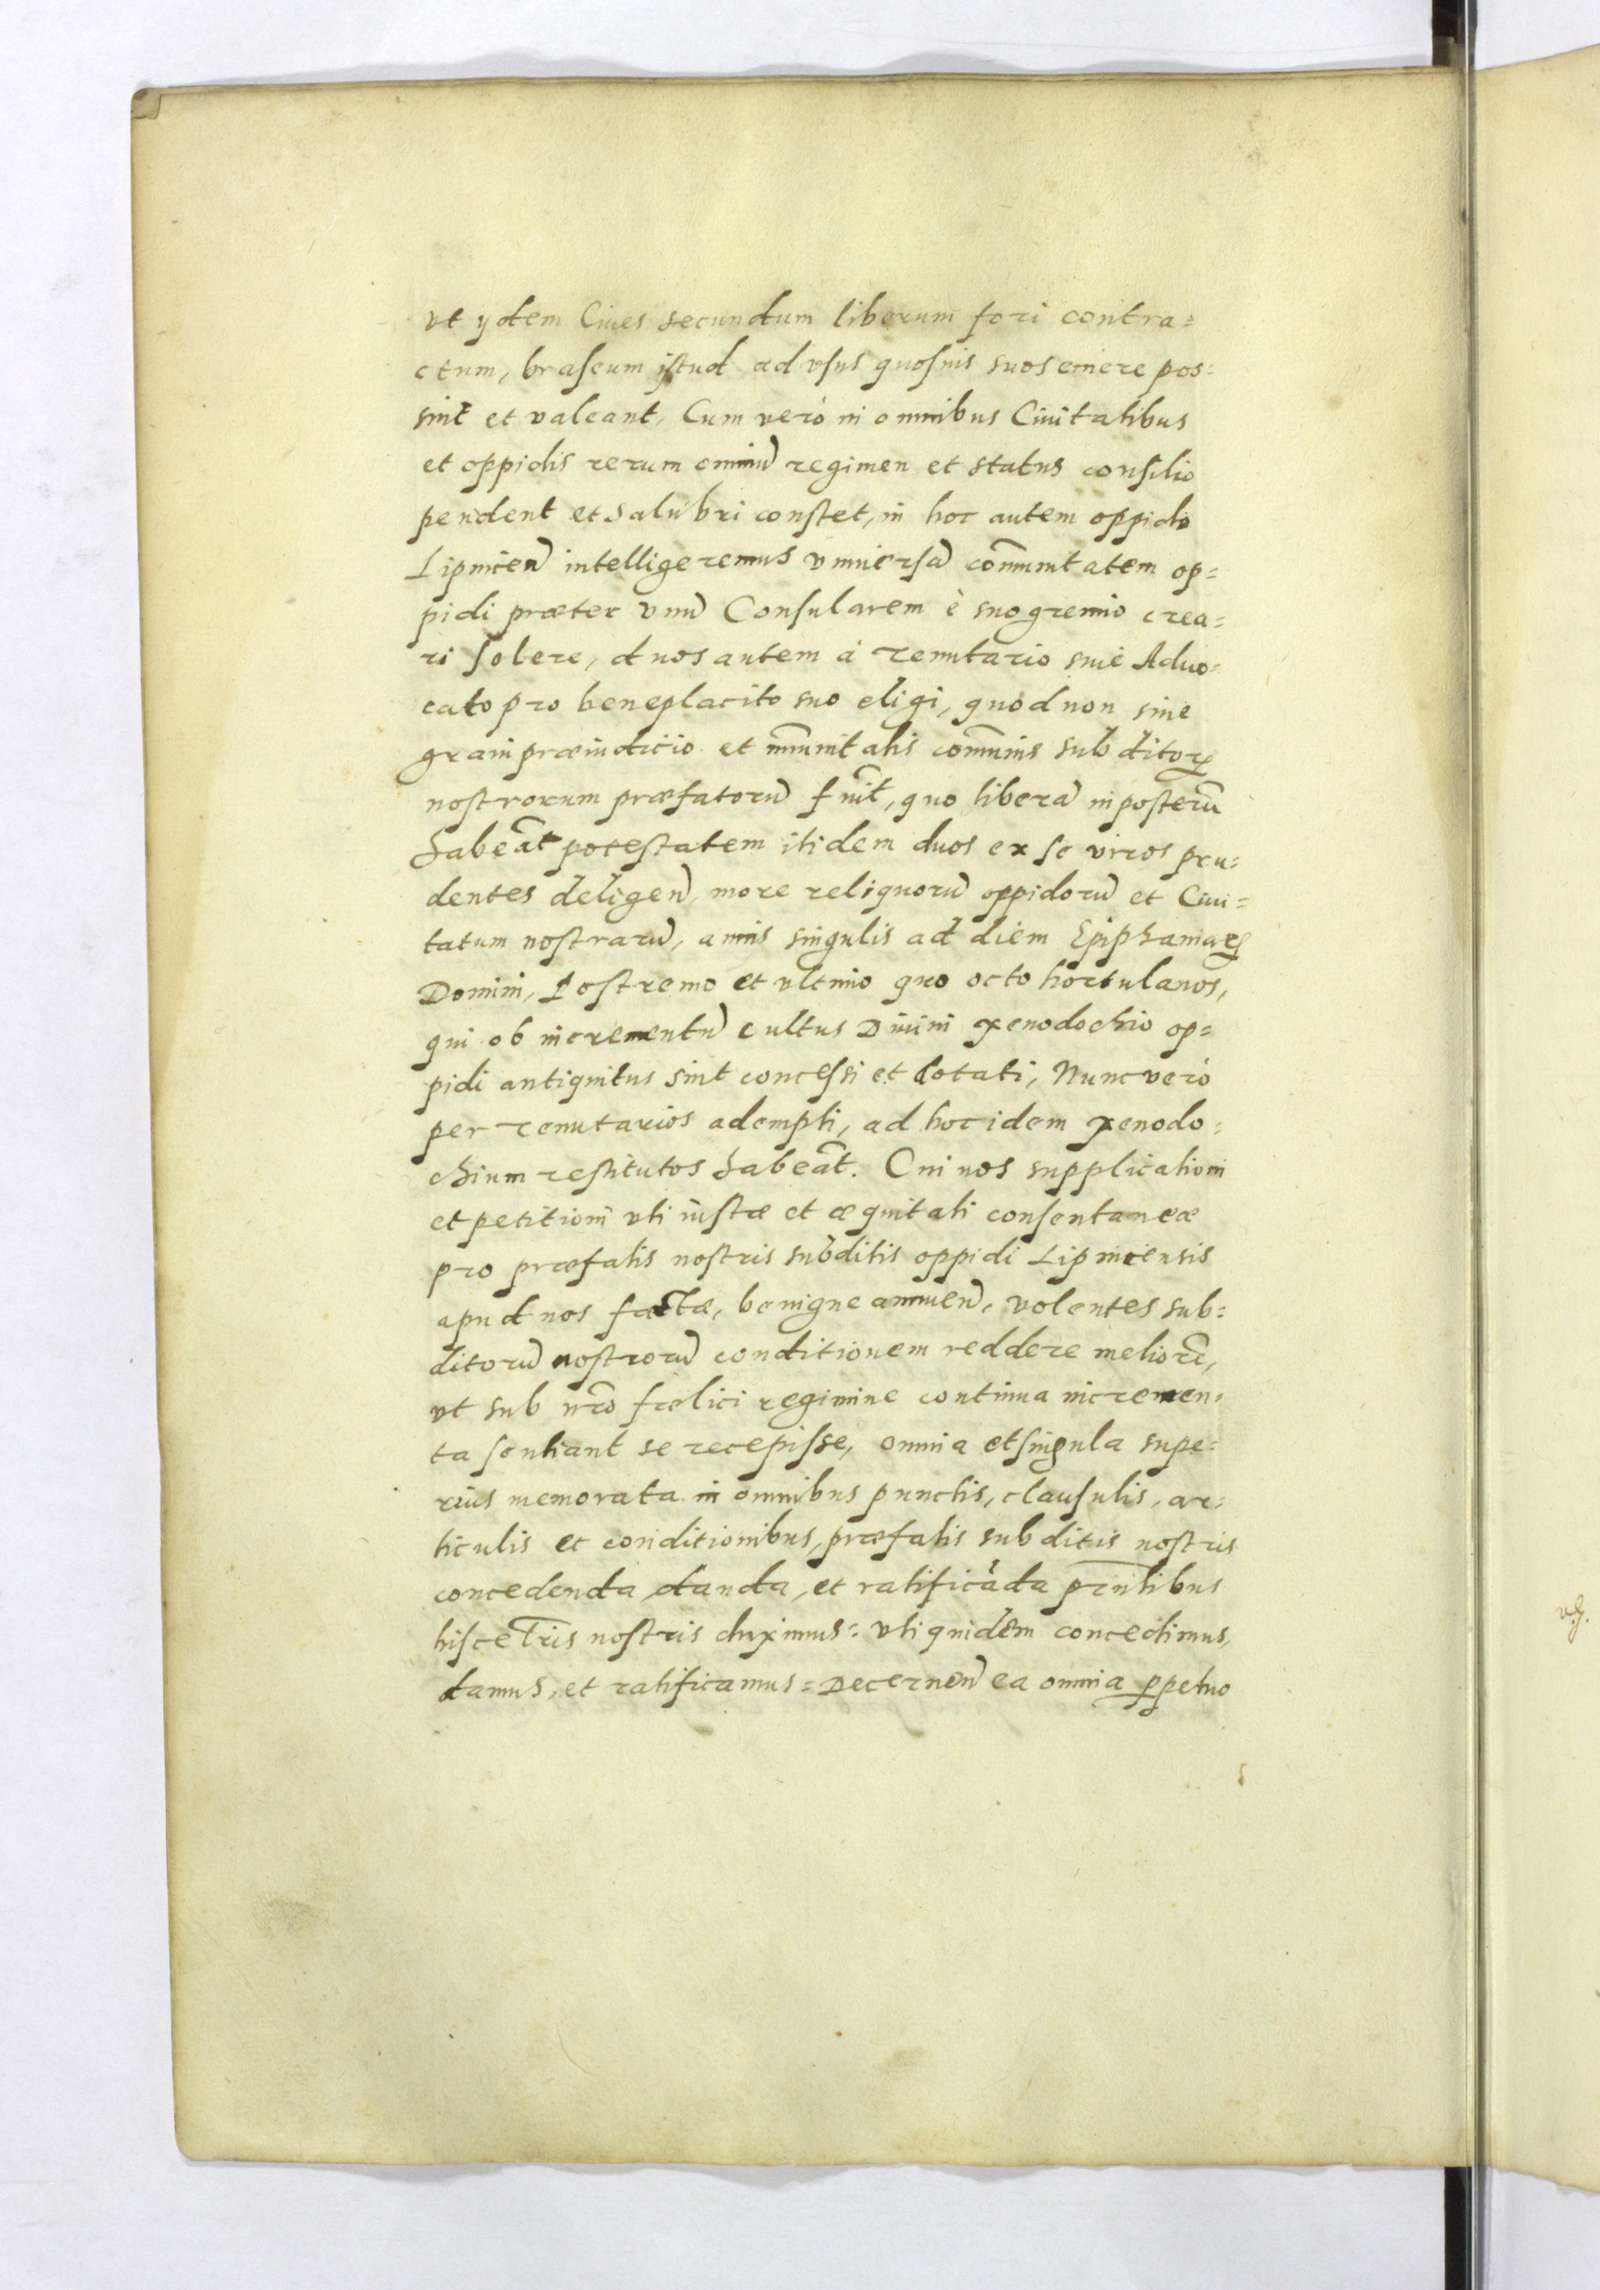 vt ydem Ciues secundum liberum fori contra=
ctum, braseum istud ad vsus quosuis suos emere pos=
sint et valeant, Cum verò in omnibus Ciuitatibus
et oppidis rerum omniū regimen et status consilio
pendent et salubri constet, in hoc autem oppido
Lipnicen̄ intelligeremus vniuersā com̄unitatem op=
pidi præter vnū Consularem è suo gremio crea=
ri solere, duos autem à tenutario siue Aduo=
cato pro beneplacito suo eligi, quod non sine
graui præiudicio et im̄unitatis com̄unis subditorꝝ
nostrorum præfatorū fuit, quo liberā in posterū
habeāt potestatem itidem duos ex se viros pru=
dentes deligen̄, more reliquorū oppidorū et Ciui=
tatum nostrarū, annis singulis ad diem Epiphaniarꝝ
Domini, Postremo et vltimo quo octo hortulanos,
qui ob incrementū cultus Diuini xenodochio op=
pidi antiquitus sint concessi et dotati, Nunc verò
per tenutarios adempti, ad hoc idem xenodo=
chium restitutos habeāt. Cui nos supplicationi
et petitioni vti iustæ et æquitati consentaneæ
pro præfatis nostris subditis oppidi Lipnicensis
apud nos factæ, benigne annuen̄, volentes sub=
ditorū nostrorū conditionem reddere meliorē,
vt sub nr̄o fælici regimine continua incremen=
ta sentiant se recepisse, omnia et singula supe=
rius memorata in omnibus punctis, clausulis, ar=
ticulis et conditionibus, præfatis subditis nostris
concedenda danda, et ratificāda prn̄tibus
hisce lr̄is nostris duximus: vti quidem concedimus,
damus, et ratificamus = Decernen̄ ea omnia ꝑpetuo